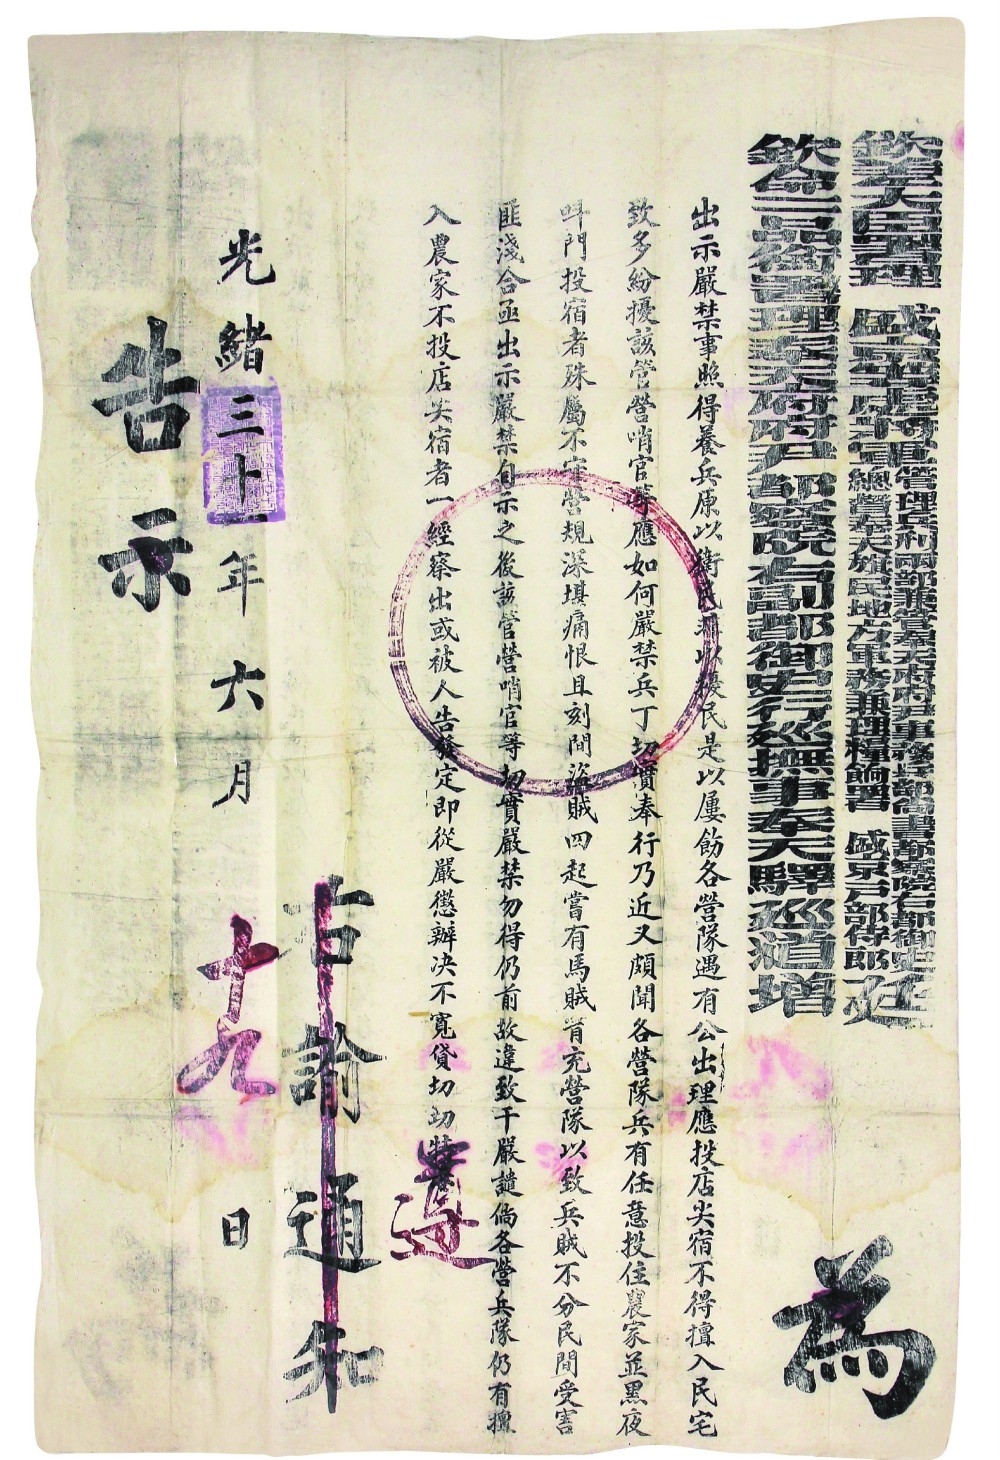 欽差大臣署理 盛京將軍管理兵刑兩部兼管奉天府府尹事務兵部尚書都察院右都御史
總督奉天旗民地方軍務兼理糧餉署 盛京戶部侍郎廷
欽命二品銜署理奉天府府尹都察院右副都御史行巡撫事奉天驛巡道增
為
出示嚴禁事照得養兵原以衛民非以擾民是以屢飭各營隊遇有公出理應投店尖宿不得擅入民宅
致多紛擾該管營哨官等應如何嚴禁兵丁切實奉行乃近又頗聞各營隊兵有任意投住農家並黑夜
叫門投宿者殊屬不守營規深堪痛恨且刻間盜賊四起嘗有馬賊冒充營隊以致兵賊不分民間受害
匪淺合亟出示嚴禁自示之後該管營哨官等切實嚴禁勿得仍前故違致干嚴譴倘各營兵隊仍有擅
入農家不投店尖宿者一經察出或被人告發定即從嚴懲辦決不寬貸切切特
遵
右諭通知
光緒三十一年六月十九日
告示